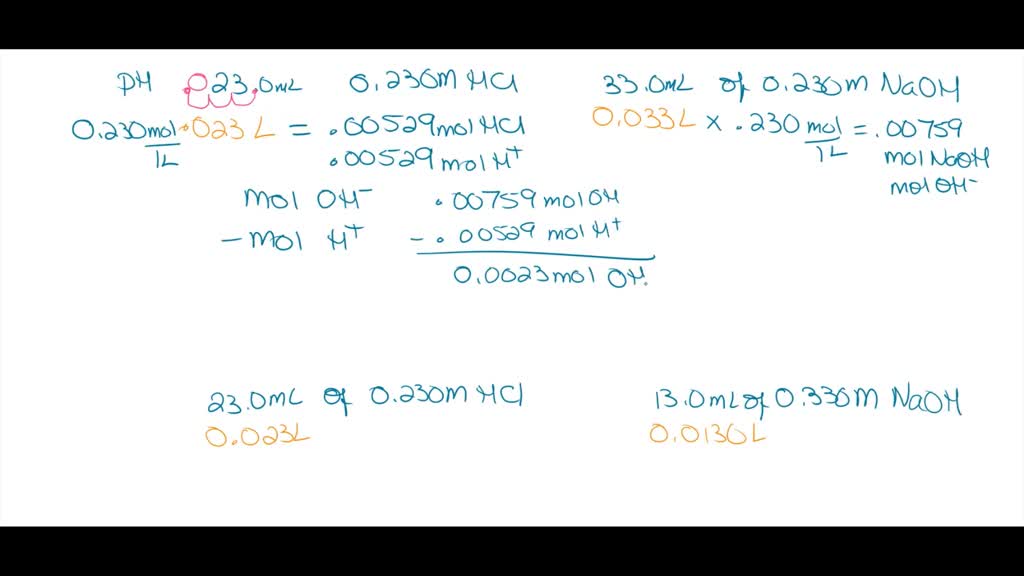 pH .023.0mL 0.230M HCl 33.0mL of 0.230M NaOH
0.230mol/1L · 023 L = .00529mol HCl 0.033L x .230 mol/1L = .00759
.00529 mol H+ mol NaOH
mol OH-
mol OH- .00759 mol OH
- mol H+ - .00529 mol H+
0.0023 mol OH.
23.0mL of 0.230M HCl 13.0mL of 0.330M NaOH
0.023L 0.0130L